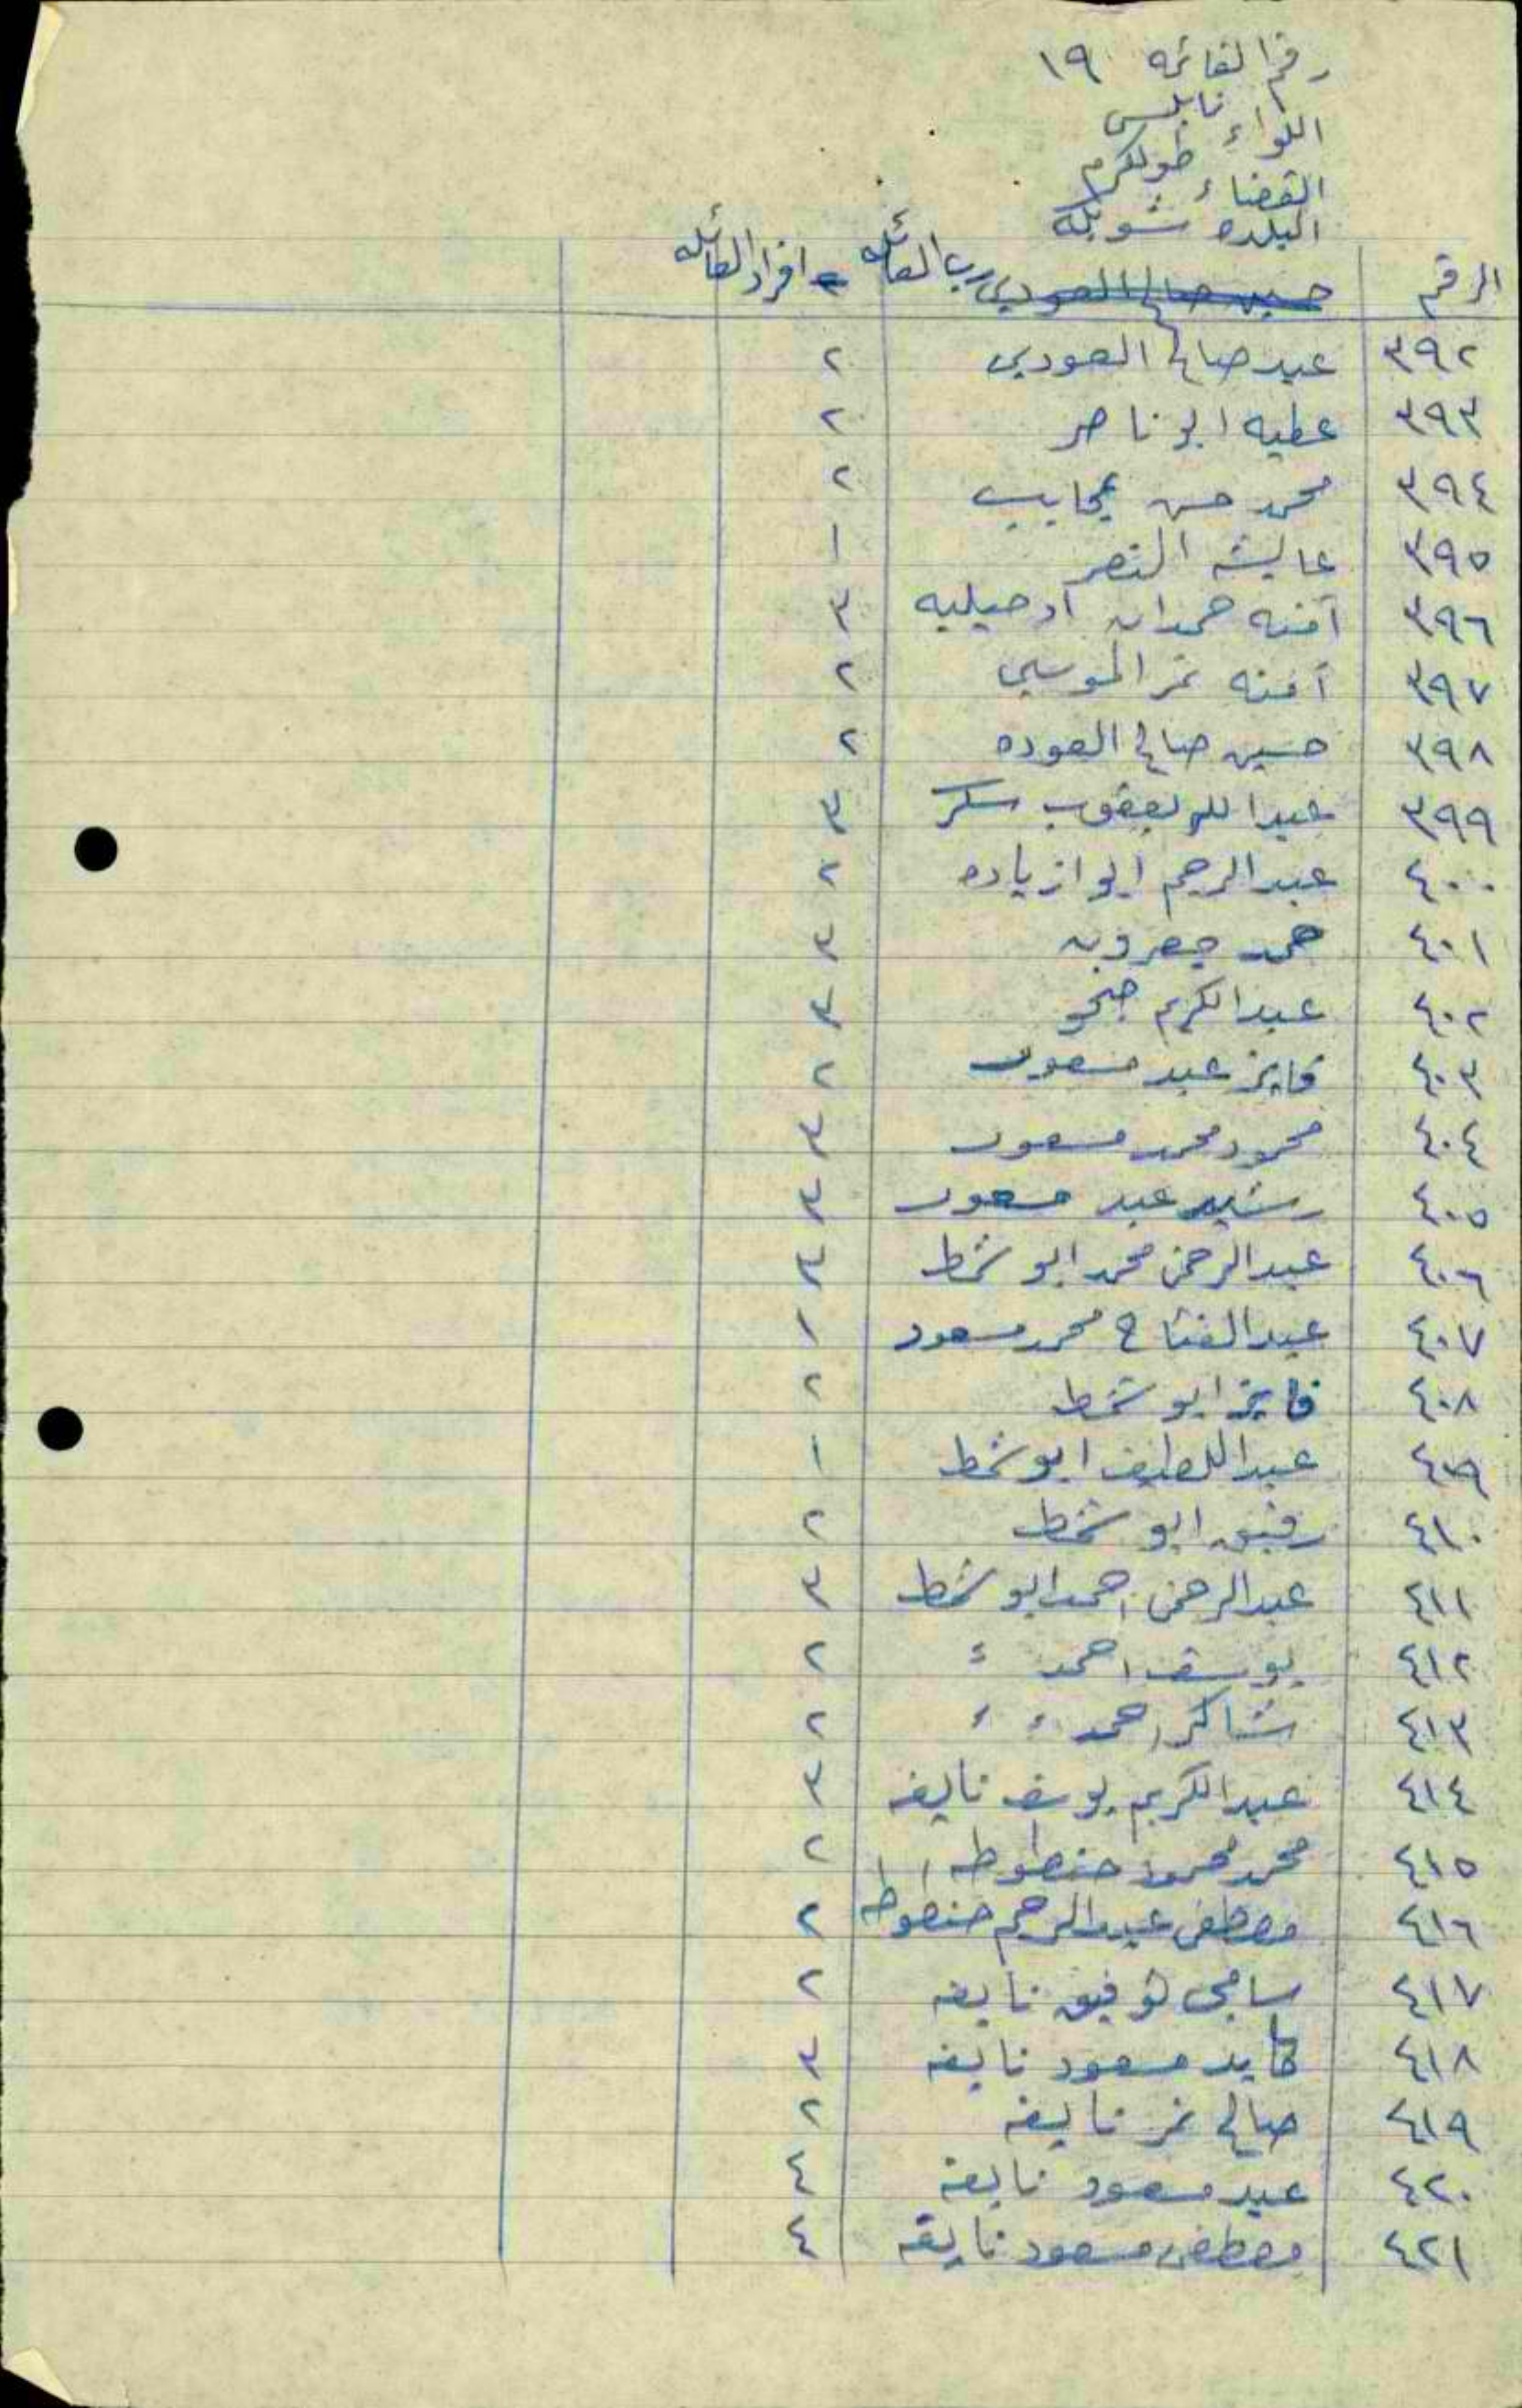 رقم القائمه ١٩
اللواء نابلس
القضاء طولكرم
البلده شويكه
الرقم رب العائله افراد العائله
٣٩٢ عبد صالح العودي ٢
٣٩٣ عطيه ابو ناصر ٢
٣٩٤ محمد حسن عجايب ٢
٣٩٥ عايشه النصر ١
٣٩٦ آمنه حمدان ٣
٣٩٧ آمنه نمر الموسى ٢
٣٩٨ حسين صالح العوده ٢
٣٩٩ عبدالله يعقوب سكر ٣
٤٠٠ عبدالرحيم ابو ازياده ٢
٤٠١ حمد جعرون ٣
٤٠٢ عبدالكريم ٣
٤٠٣ فايز عبد مسعود ٢
٤٠٤ محمود محمد مسعود ٣
٤٠٥ رشيد عبد مسعود ٣
٤٠٦ عبدالرحمن محمد ابو شمط ٣
٤٠٧ عبدالفتاح محمد مسعود ١
٤٠٨ فايز ابو شمط ٢
٤٠٩ عبداللطيف ابو شمط ١
٤١٠ رفيق ابو شمط ٢
٤١١ عبدالرحمن احمد ابو شمط ٣
٤١٢ يوسف احمد ٢
٤١٣ شاكر احمد ٢
٤١٤ عبدالكريم يوسف نايفه ٣
٤١٥ محمد محمود حنطوطه ٢
٤١٦ مصطفى عبدالرحيم حنطوطه ٢
٤١٧ سامي توفيق نايفه ٢
٤١٨ كايد مسعود نايفه ٣
٤١٩ صالح نمر نايفه ٢
٤٢٠ عبد مسعود نايفه ٤
٤٢١ مصطفى مسعود نايفه ٤